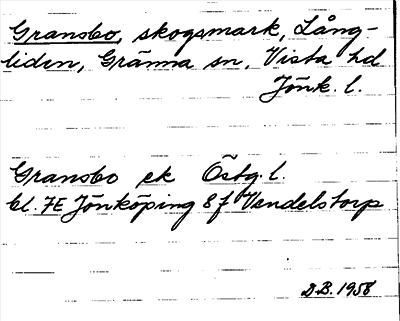 Gransbo, skogsmark, Lång-
liden, Gränna sn, Vista hd
Jönk. l.
Gransbo ek Östg. l.
bl. 7E Jönköping 8f Vendelstorp
D.B. 1958